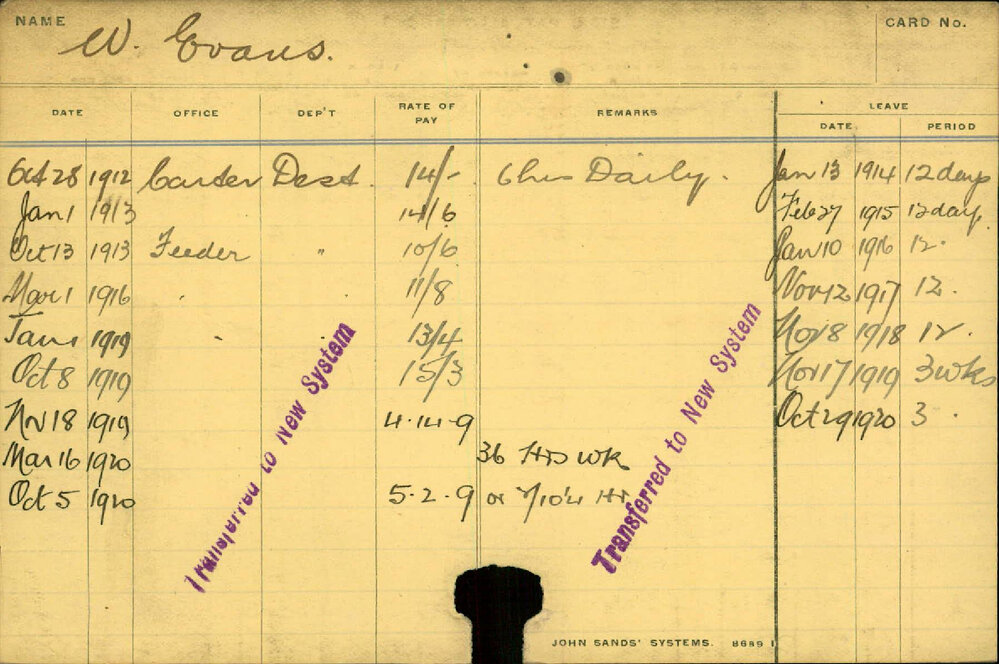 NAME W. Evans. CARD No.
DATE OFFICE DEP'T RATE OF PAY REMARKS LEAVE
DATE PERIOD
Oct 28 1912 Carder Dest. 14/- 6 hrs Daily. Jan 13 1914 12 days
Jan 1 1913 14/6 Feb 27 1915 12 day.
Oct 13 1913 Feeder " 10/6 Jan 10 1916 12.
Mar 1 1916 11/8 Nov 12 1917 12.
Jan 1 1919 13/4 Nov 8 1918 12.
Oct 8 1919 15/3 Nov 17 1919 3 wks
Nov 18 1919 4.14.9 Oct 29 1920 3.
Mar 16 1920 36 Hrs wk
Oct 5 1920 5.2.9 or Hr
Transferred to New System
Transferred to New System
JOHN SANDS' SYSTEMS. 8689